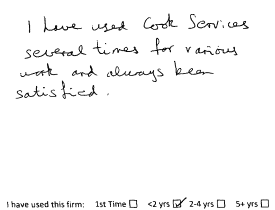 I have used Cook Services
several times for various
work and always been
satisfied.
I have used this firm: 1st Time ☐ <2 yrs ☑ 2-4 yrs ☐ 5+ yrs ☐